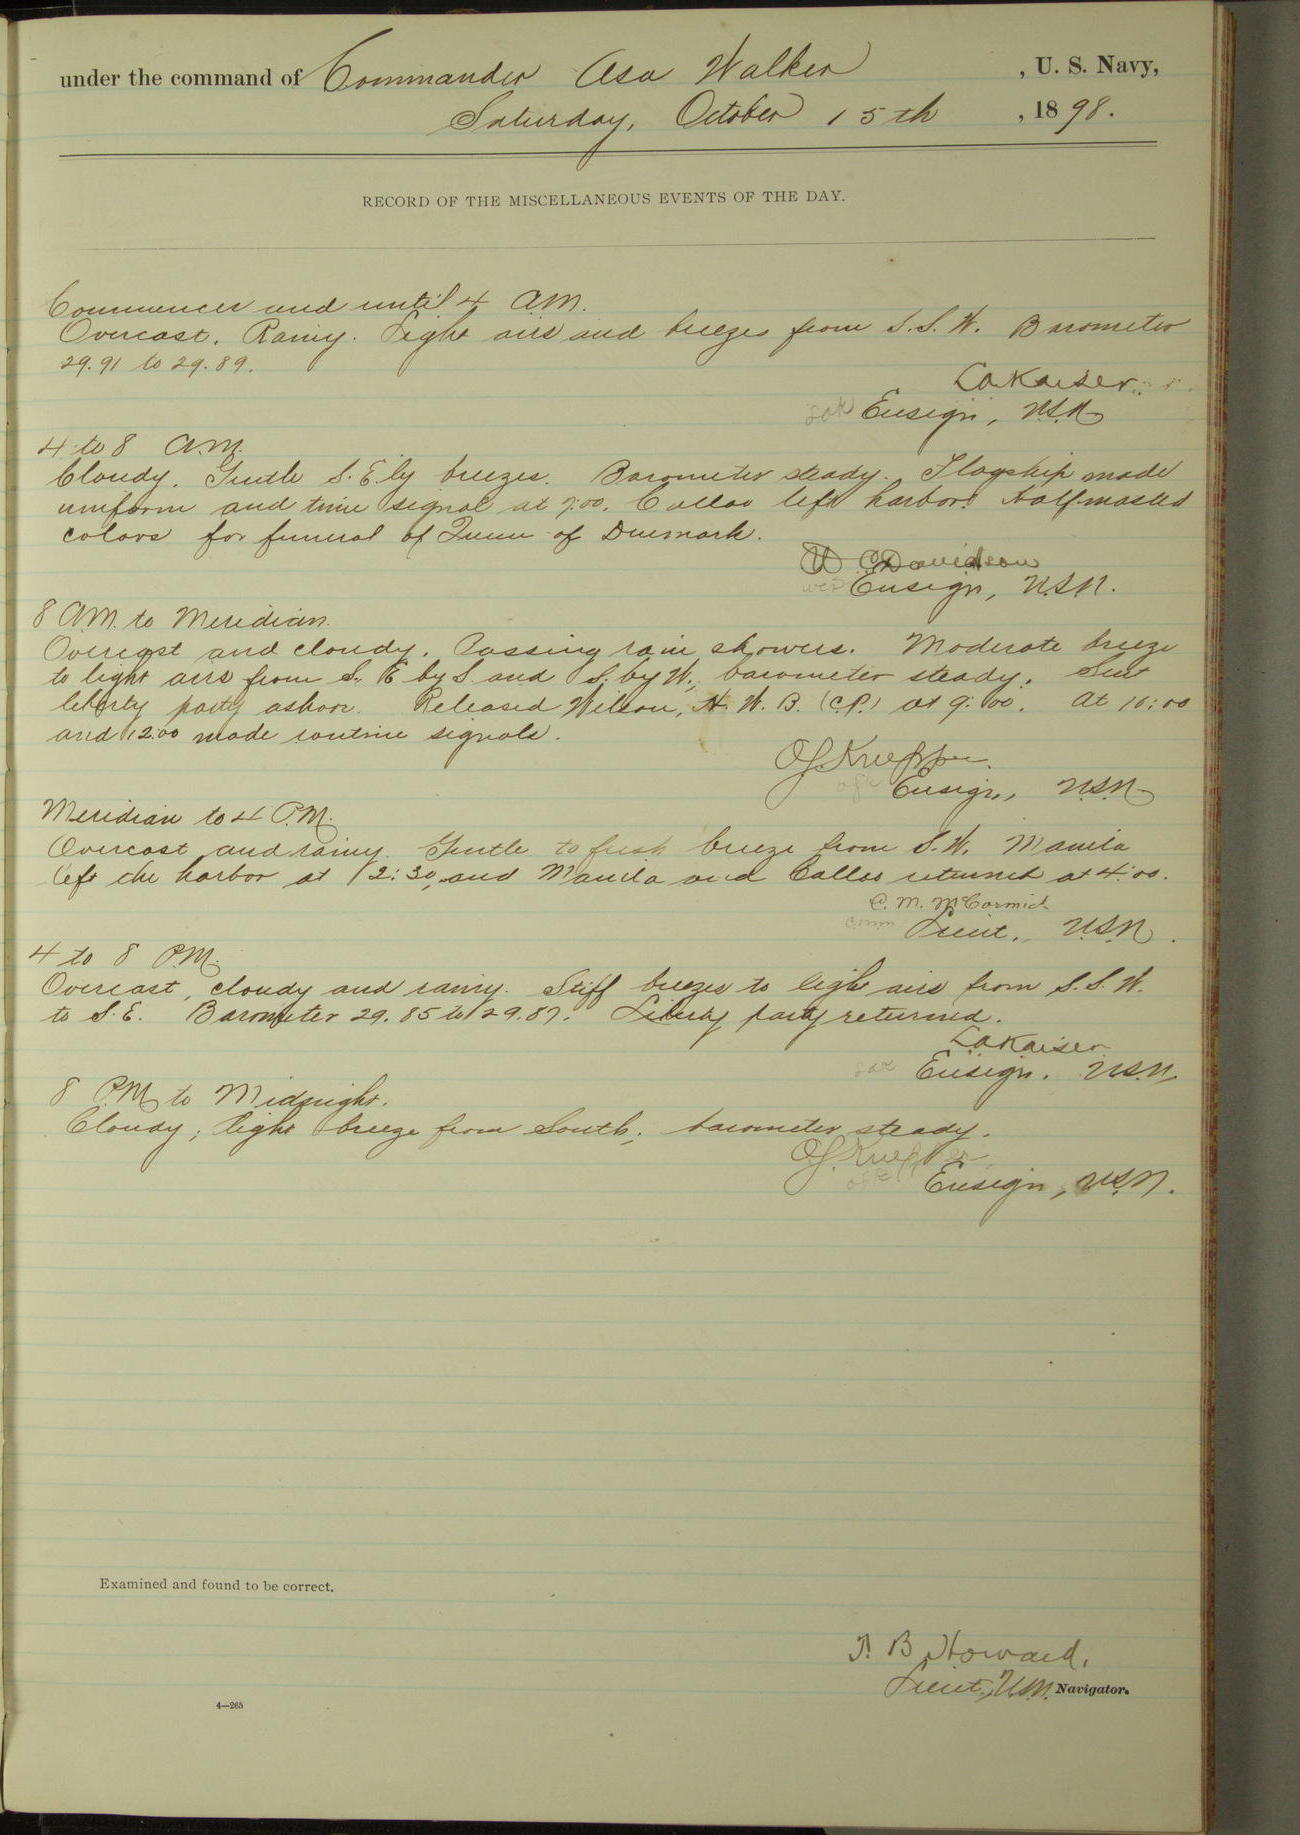 under the command of Commander Asa Walker , U. S. Navy,
Saturday, October 15th , 1898.
RECORD OF THE MISCELLANEOUS EVENTS OF THE DAY.
Commences and until 4 A.M.
Overcast. Rainy. Light airs and breezes from S.S.W. Barometer
29.91 to 29.89.
LAKaiser.
Ensign, U.S.N.
4 to 8 A.M.
Cloudy. Gentle S.E'ly breezes. Barometer steady. Flagship made
uniform and time signal at 7:00. Callao left harbor. Halfmasted
colors for funeral of Queen of Denmark.
W C Davidson
Ensign, U.S.N.
8 A.M. to Meridian.
Overcast and cloudy. Passing rain showers. Moderate breeze
to light airs from S.E by S. and S. by W., barometer steady. Sent
liberty party ashore. Released Wilson, H. W. B. (C.P.) at 9:00. At 10:00
and 12:00 made routine signals.
O.J. Kneppper.
Ensign, U.S.N.
Meridian to 4 P.M.
Overcast and rainy. Gentle to fresh breeze from S.W. Manila
left the harbor at 12:30, and Manila and Callao returned at 4:00.
C. M. McCormick
Lieut., U.S.N.
4 to 8 P.M.
Overcast, cloudy and rainy. Stiff breezes to light airs from S.S.W.
to S.E. Barometer 29.85 to 29.87. Liberty party returned.
LAKaiser
Ensign. U.S.N.
8 P.M. to Midnight.
Cloudy; light breeze from South; barometer steady.
Ensign, U.S.N.
Examined and found to be correct.
T. B. Howard,
Lieut., U.S.N. Navigator.
4—265